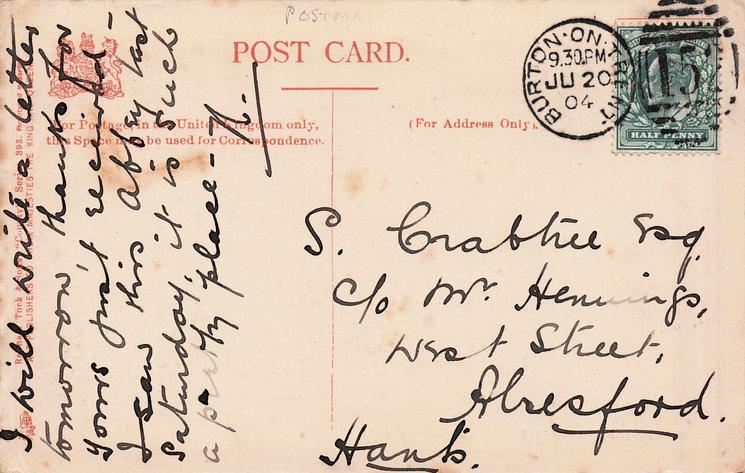 POSTMA
POST CARD.
For Postage in the United Kingdom only,
this Space may be used for Correspondence.
(For Address Only).
BURTON-ON-TRENT
9.30PM
JU 20
04
15
HALF PENNY
I will write a letter
tomorrow, thanks for
yours just received -
I saw this Abbey last
Saturday, it is such
a pretty place -
S. Crabtree Esq.
c/o Mr. Hennings,
West Street,
Alresford.
Hants.